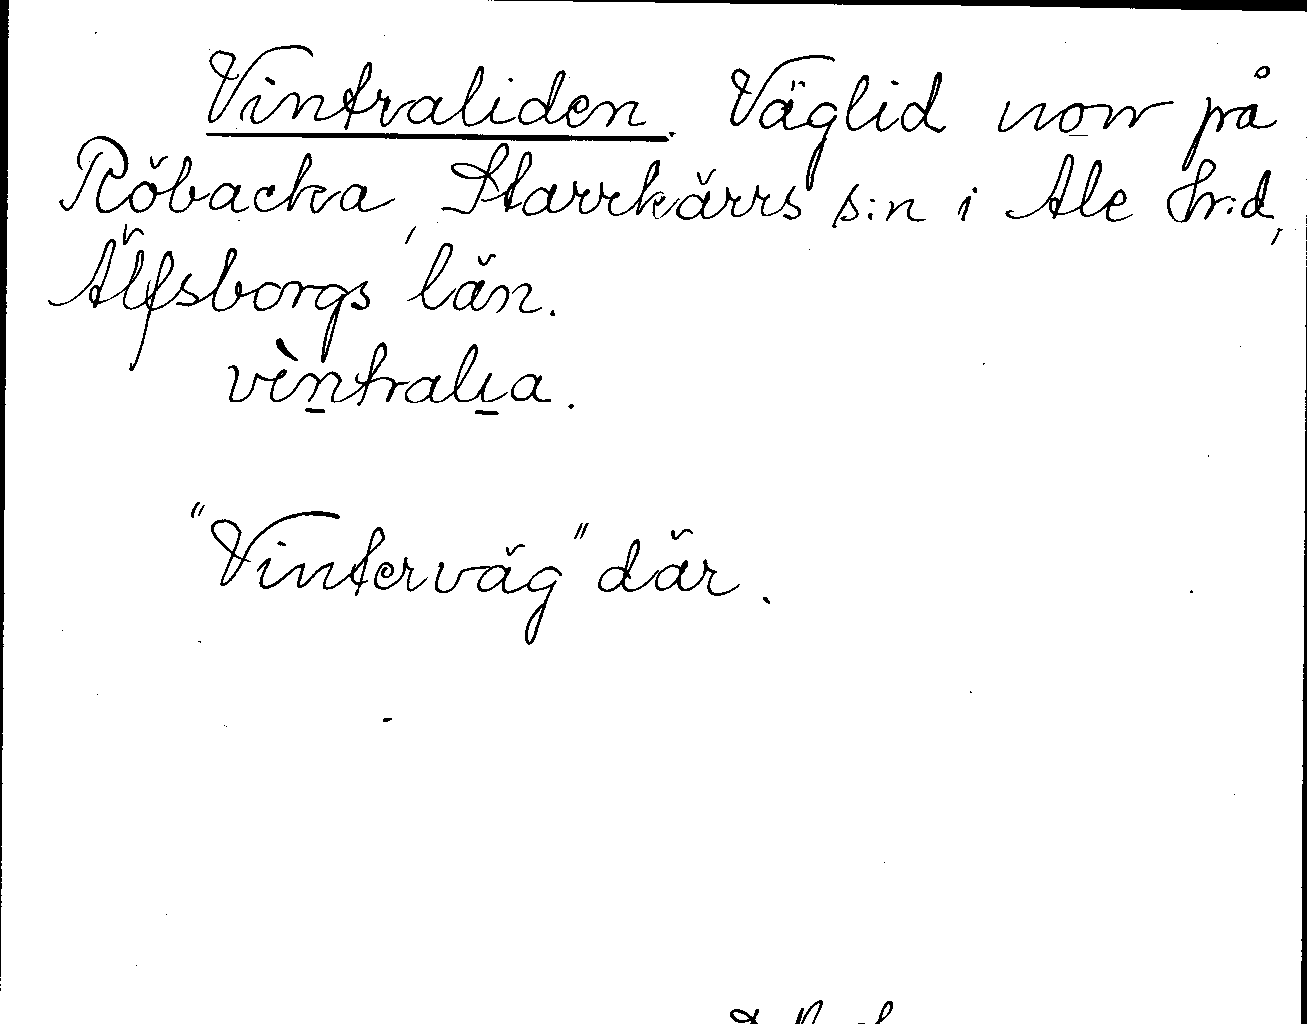 Vintraliden. Väglid norr på
Röbacka, Starrkärrs s:n i Ale hr:d,
Älfsborgs län.
vìntralia.
"Vinterväg" där.